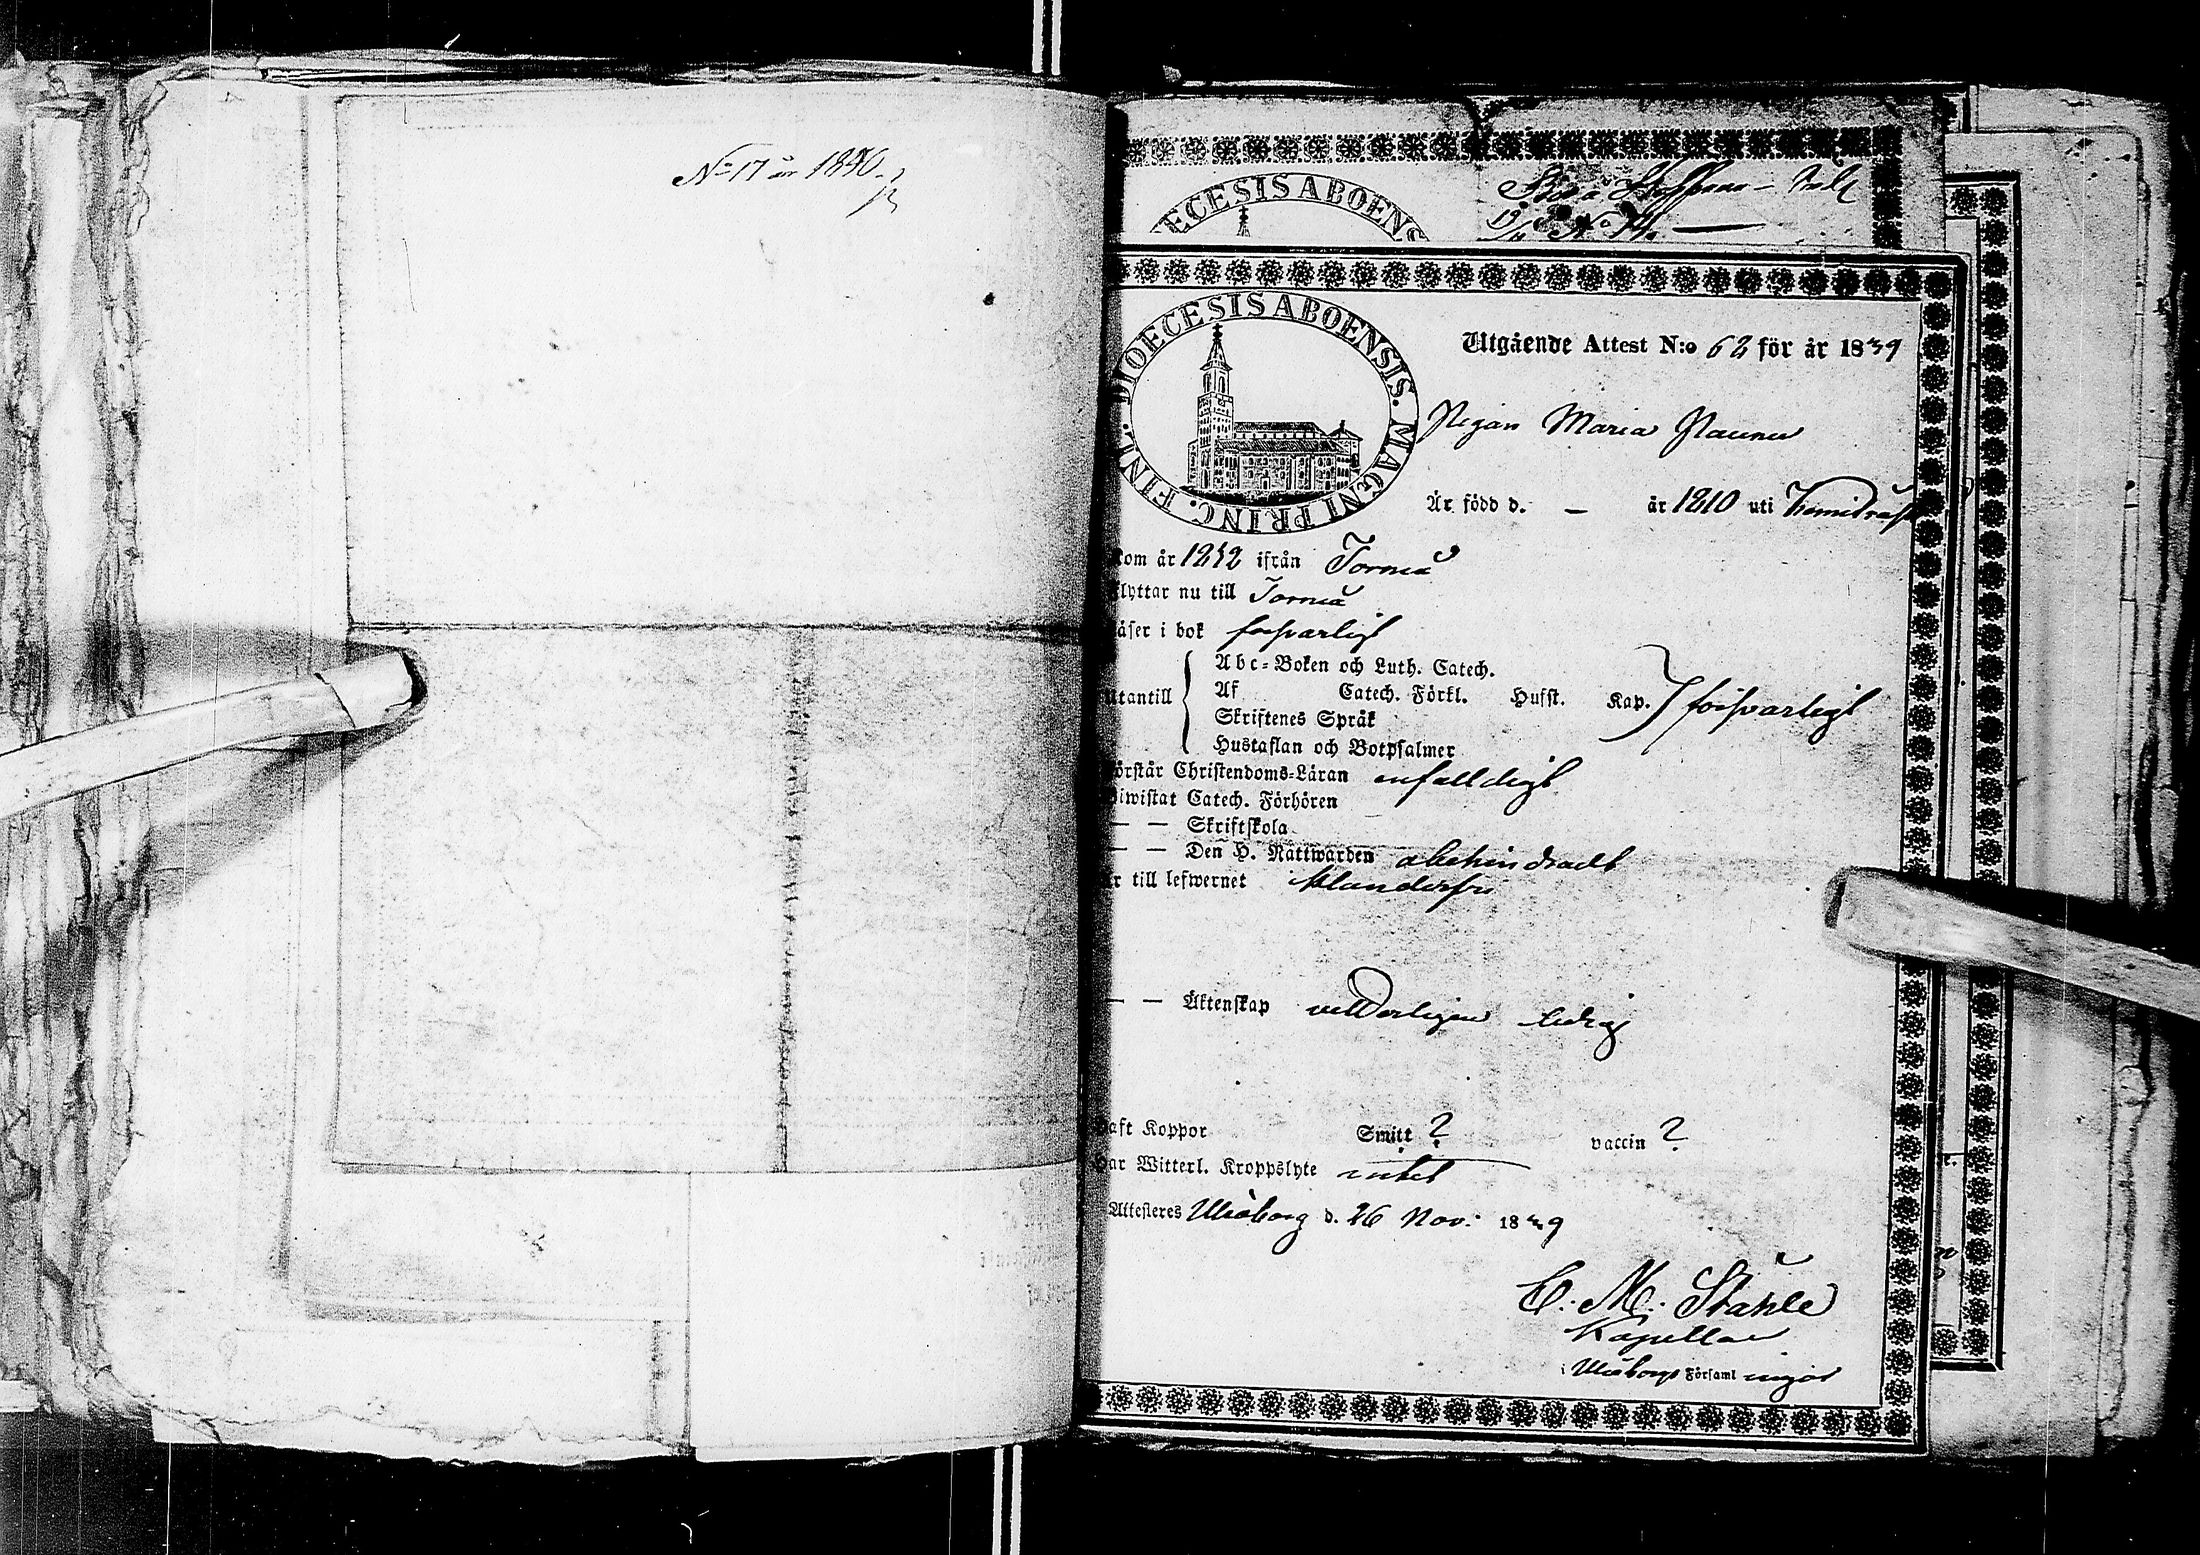 No 17 år 1840
DIOECESIS ABOENS
No 74.
DIOECESIS ABOENSIS. MAGNI PRINC. FINL.
Utgående Attest N:o 62 för år 1839
Pigan Maria
Är född d. — år 1810 uti Kemiträsk
kom år 1832 ifrån Torneå
flyttar nu till Torneå
äser i bok försvarligt
Abc=Boken och Luth. Catech.
utantill Af Catech. Förkl. Husst. Kap. försvarligt
Skriftenes Språk
Hustaflan och Botpsalmer
örstår Christendoms=Läran enfalldigt
iwistat Catech. Förhören
— — Skriftskola
— — Den H. Nattwarden obehindradt
är till lefwernet klanderfri
— — Äktenskap vetterligen ledig
aft Koppor Smitt ? vaccin ?
ar Witterl. Kroppslyte intet
Attesteres Uleåborg d. 26 Nov. 1839
C. M. Ståhle
Kapellan
i Uleåborgs Församlingar